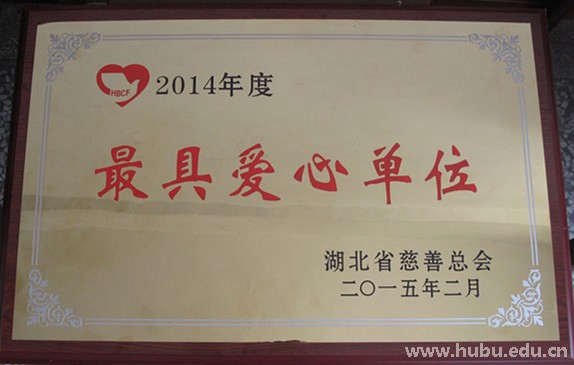 HBCF
2014年度
最具爱心单位
湖北省慈善总会
二〇一五年二月
www.hubu.edu.cn